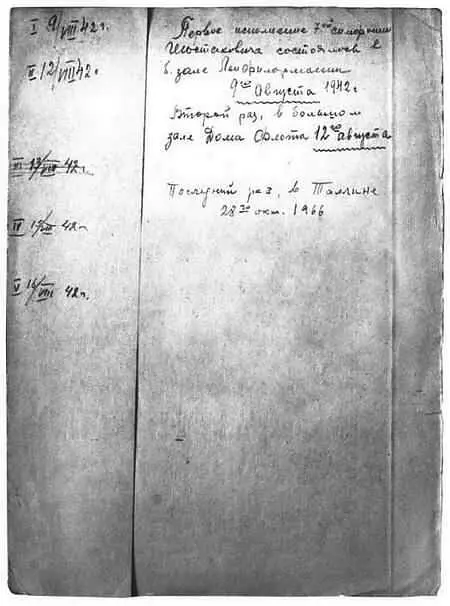 I 9/VIII 42г.
II 12/VIII 42г.
III 13/VIII 42г.
IV 15/VIII 42г
V 16/VIII 42г.
Первое исполнение 7ой симфонии
Шостаковича состоялось в
б. зале Ленфилармонии
9го Августа 1942г.
Второй раз, в большом
зале Дома Флота 12го августа
Последний раз, в Таллине
28го окт. 1966